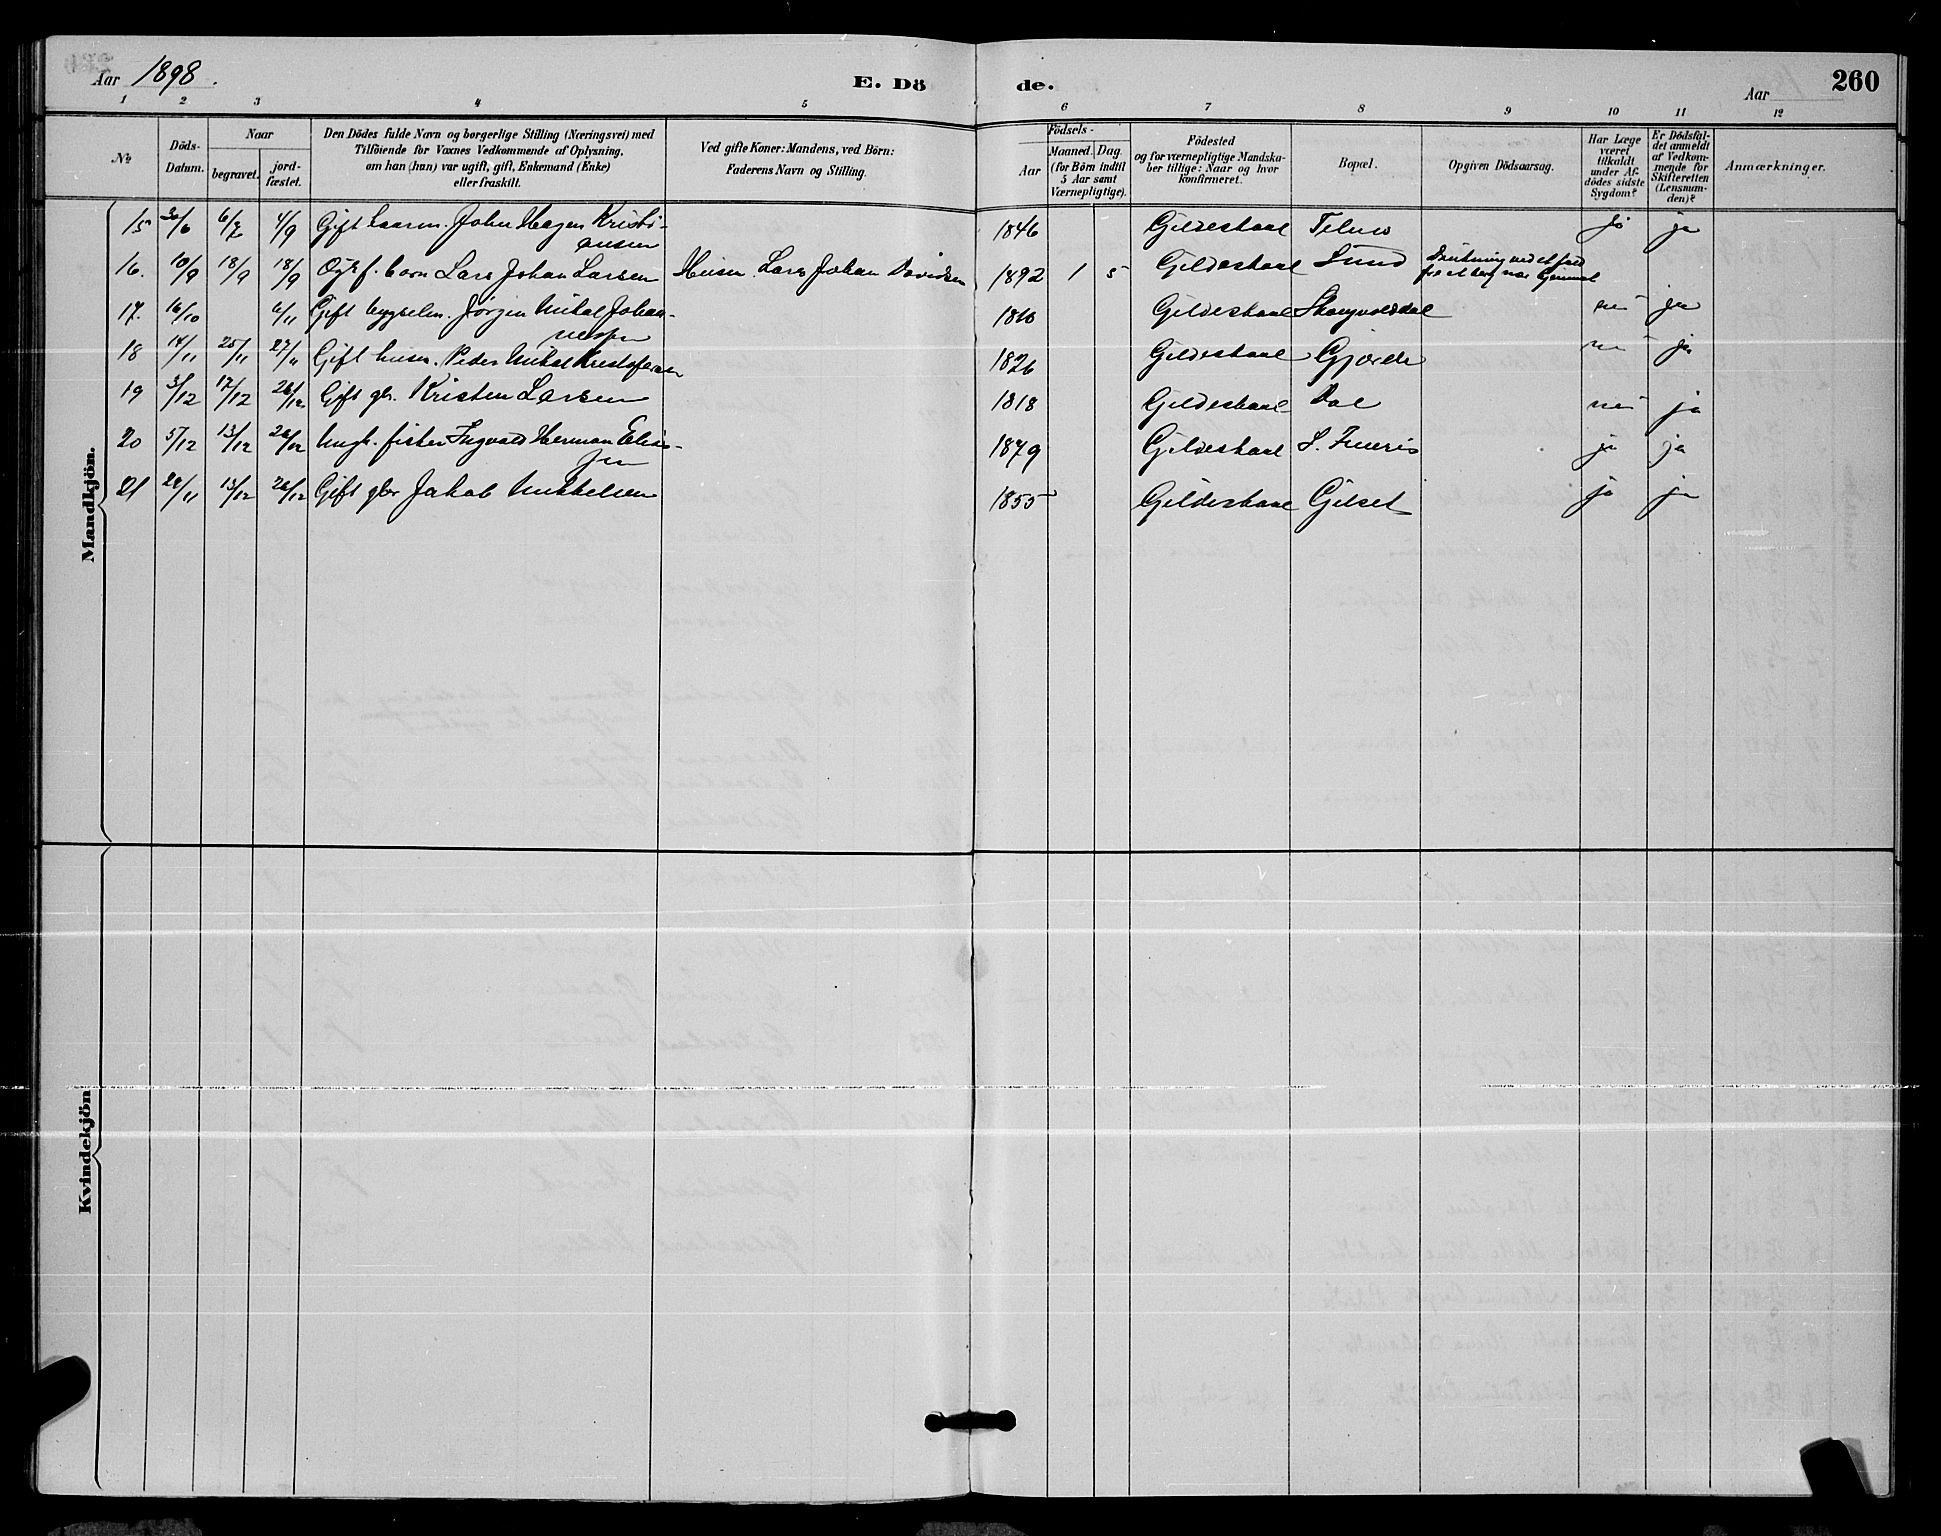 Aar 1898. E. Dö de. Aar 260
1 2 3 4 5 6 7 8 9 10 11 12
No
Döds-Datum.
Naar
begravet.
jord-fæstet.
Den Dödes fulde Navn og borgerlige Stilling (Næringsvei) med
Tilföiende for Voxnes Vedkommende af Oplysning,
om han (hun) var ugift, gift, Enkemand (Enke)
eller fraskilt.
Ved gifte Koner: Mandens, ved Börn:
Faderens Navn og Stilling.
Födsels-
Aar
Maaned. Dag.
(for Börn indtil
5 Aar samt
Værnepligtige).
Födested
og for værnepligtige Mandska-
ber tillige: Naar og hvor
konfirmeret.
Bopæl.
Opgiven Dödsaarsag.
Har Læge
været
tilkaldt
under Af-
dödes sidste
Sygdom?
Er Dödsfal-
det anmeldt
af Vedkom-
mende for
Skifteretten
(Lensman-
den)?
Anmærkninger.
Mandkjön.
15 30/6 6/7 4/9 Gift John Hagen Kristi- 1846 Gildeskaal ja ja
ansen
16. 10/9 18/9 18/9 Lars Johan Larsen Lars Johan Davidsen 1892 1 5 Gildeskaal Sund
17. 16/10 6/11 Gift Jørgen Mikal Johan- Gildeskaal nei ja
nessen
18 14/11 25/11 27/11 Gift husm. Peder Mikal Kristofersen 1826 Gildeskaal nei ja
19 3/12 17/12 26/12 Gift gbr. Kristen Larsen 1818 Gildeskaal nei ja
20 5/12 13/12 26/12 Ungk. fisker Ingvald Herman Elias- 1879 Gildeskaal ja ja
sen
21 29/11 13/12 26/12 Gift gbr Jakob Mikkelsen 1855 Gildeskaal Gilset ja ja
Kvindekjön